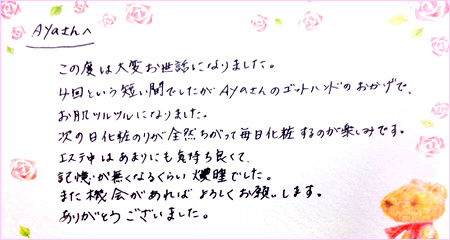 Ayaさんへ
この度は大変お世話になりました。
4回という短い間でしたがAyaさんのゴットハンドのおかげで、
お肌ツルツルになりました。
次の日化粧のりが全然ちがって毎日化粧するのが楽しみです。
エステ中はあまりにも気持ち良くて、
記憶が無くなるくらい爆睡でした。
また機会があればよろしくお願いします。
ありがとうございました。